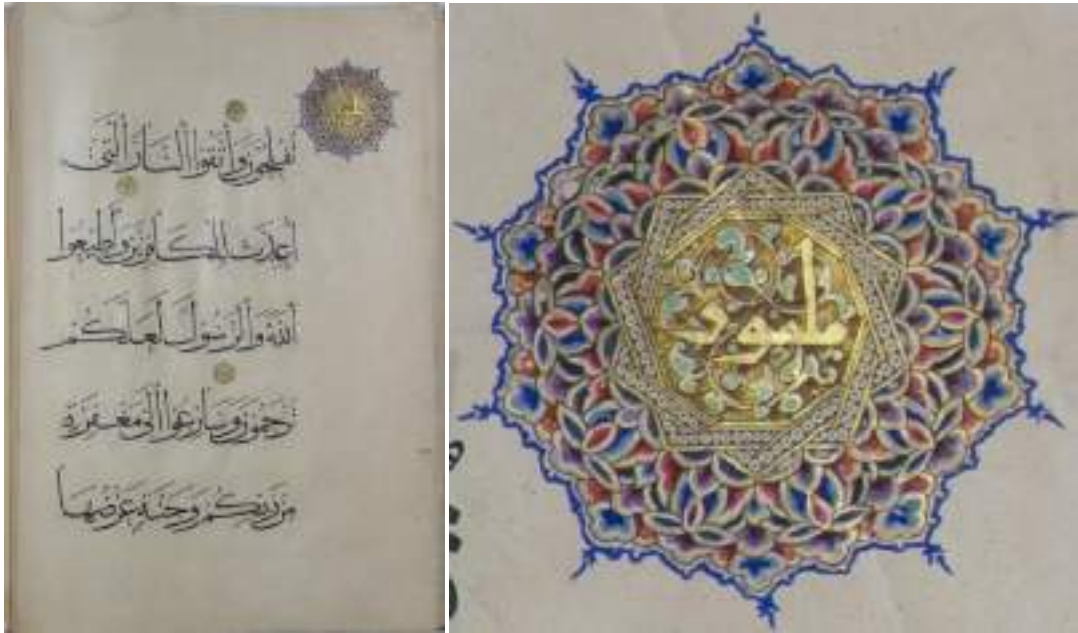 تفلحون وٱتقوا ٱلنار ٱلتي
أعدت للكافرين وأطيعوا
ٱلله وٱلرسول لعلكم
ترحمون وسارعوا إلى مغفرة
من ربكم وجنة عرضها